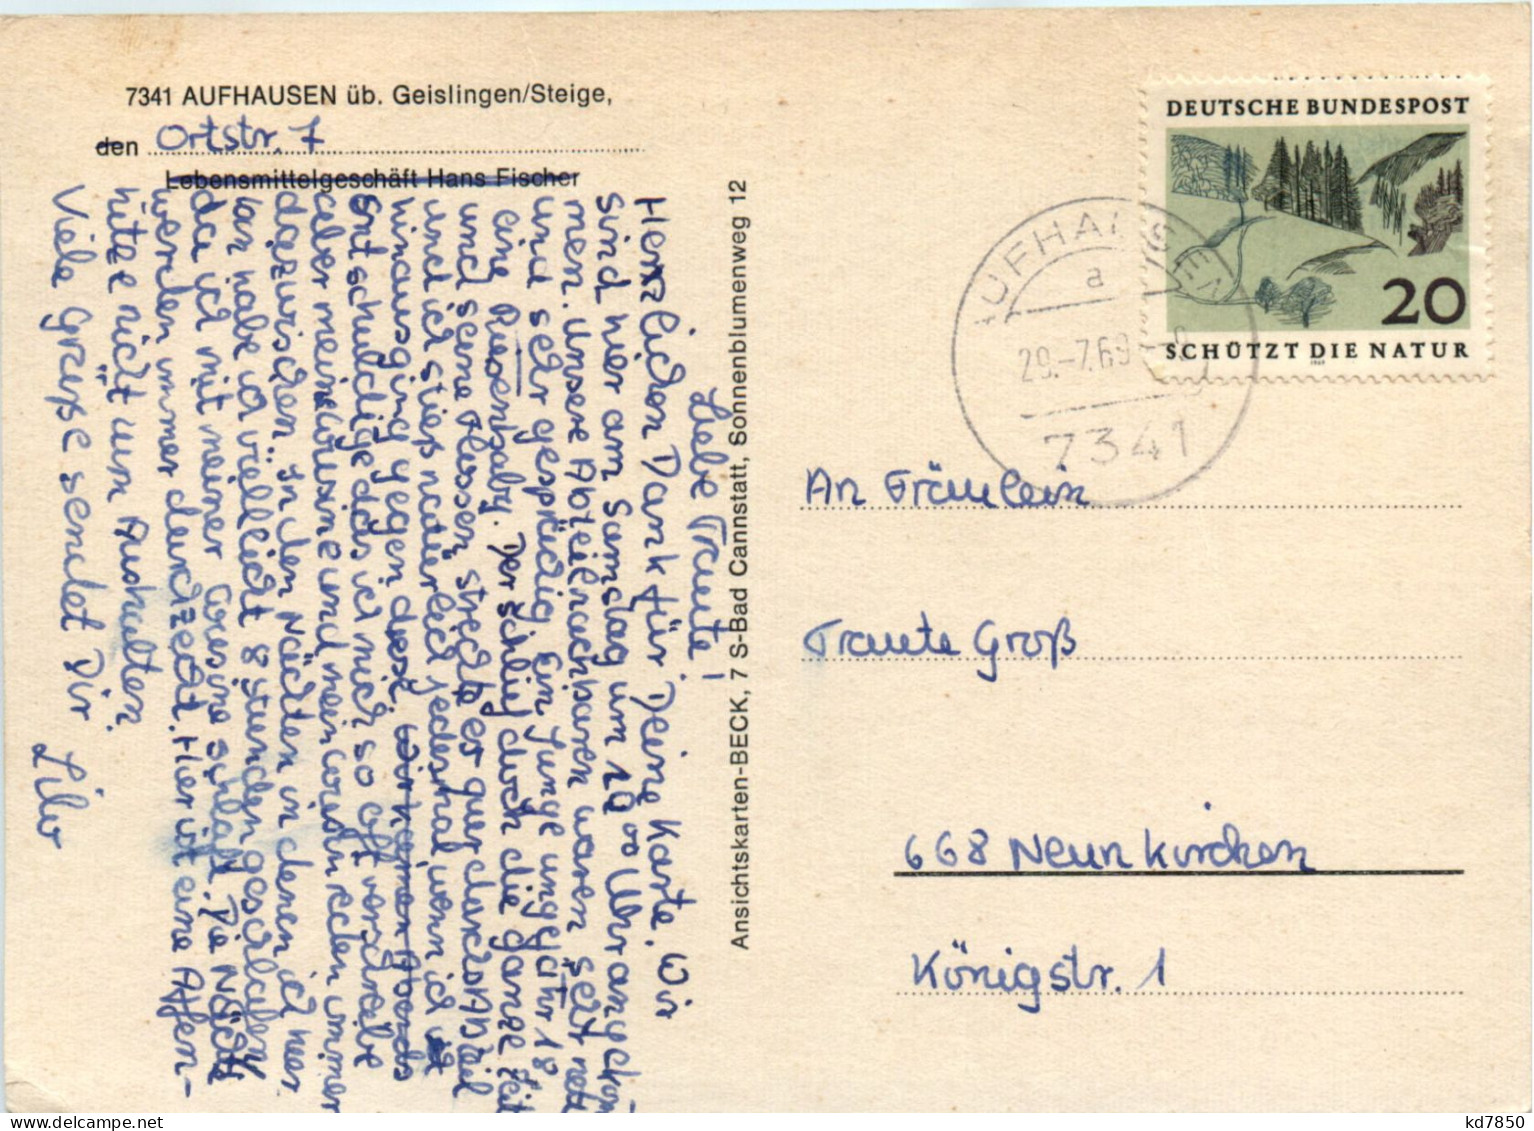 7341 AUFHAUSEN üb. Geislingen/Steige,
den Ortstr. 7
Lebensmittelgeschäft Hans Fischer
Liebe Traute!
Herzlichen Dank für Deine Karte. Wir
sind hier am Samstag um 10 00 Uhr angekom
men. Unsere Abteilnachbaren waren sehr nett
und sehr gesprächig. Ein Junge ungefähr 18
eine Riesenbaby. Der schlief doch die ganze Zeit
und seine Flossen streckte er quer durchs Abteil
und ich stieß natürlich jedesmal wenn ich
hinausging gegen diese. Wir kamen Abends
Entschuldige das ich mich so oft verschreibe
aber meine Cusine und mein Cousin reden immer
dazwischen. In den Nächten in denen ich hier
war habe ich vielleicht 8 Stunden geschlafen
da ich mit meiner Cousine schlafe. Die Nächte
werden immer durchzecht. Hier ist eine Affen-
hitze nicht um Aushalten.
Viele Grüße sendet Dir
Ansichtskarten-BECK, 7 S-Bad Cannstatt, Sonnenblumenweg 12
DEUTSCHE BUNDESPOST
20
SCHÜTZT DIE NATUR
1969
AUFHAUSEN
a
29.-7.69
7341
An Fräulein
Traute Groß
668 Neunkirchen
Königstr. 1
kd7850